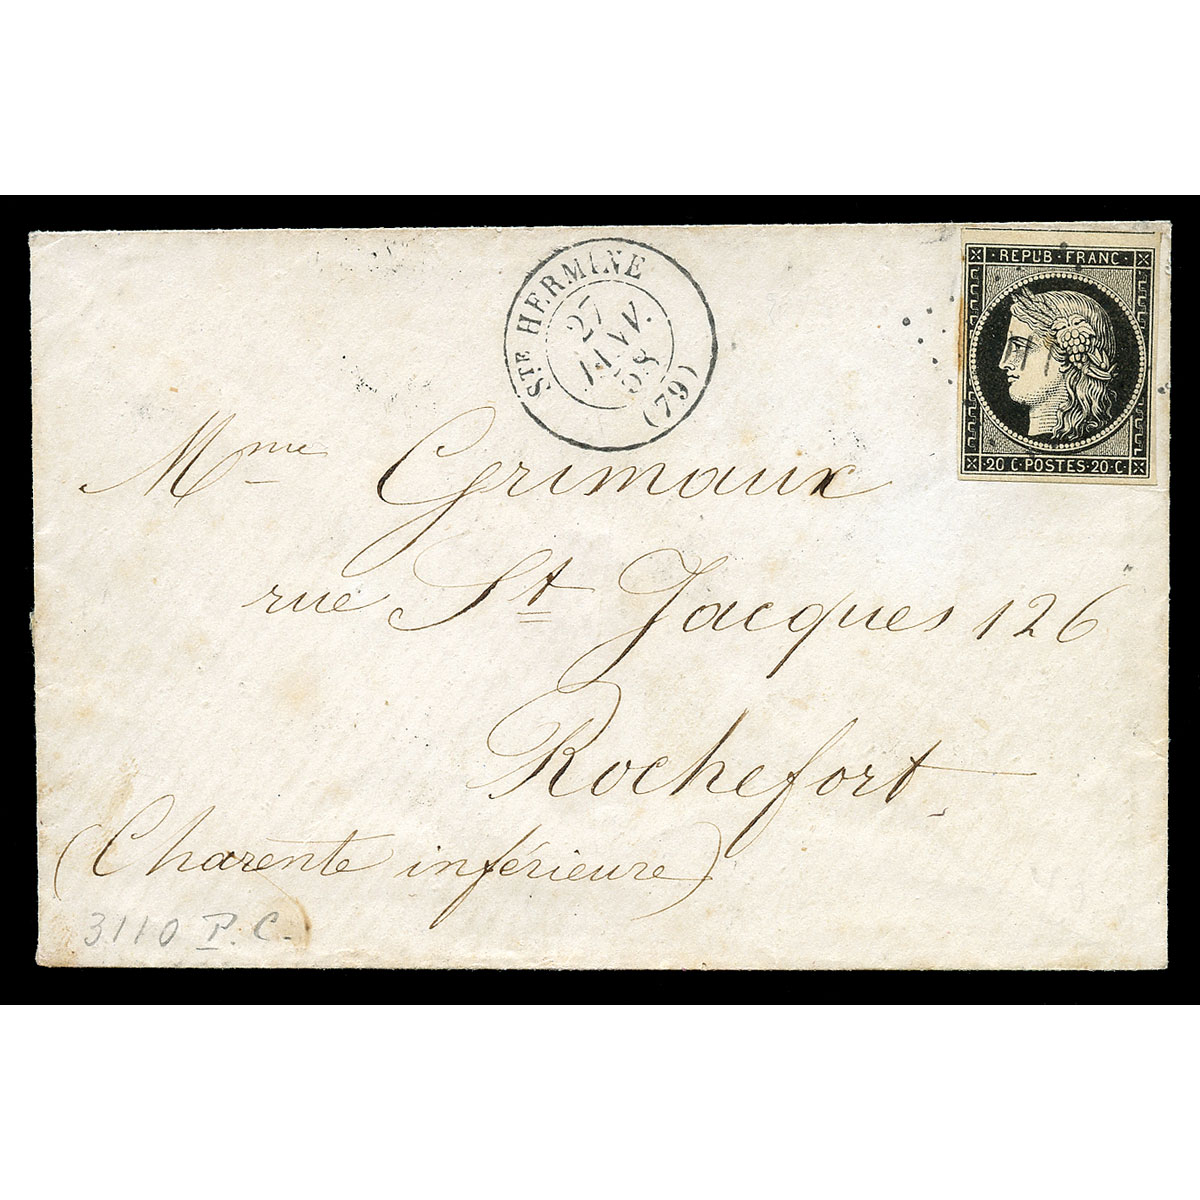 STE HERMINE
27
JANV.
58
(79)
REPUB·FRANC·
20·C·POSTES·20·C·
Mme Grimaux
rue St Jacques 126
Rochefort
(Charente inférieure)
3110 P.C.